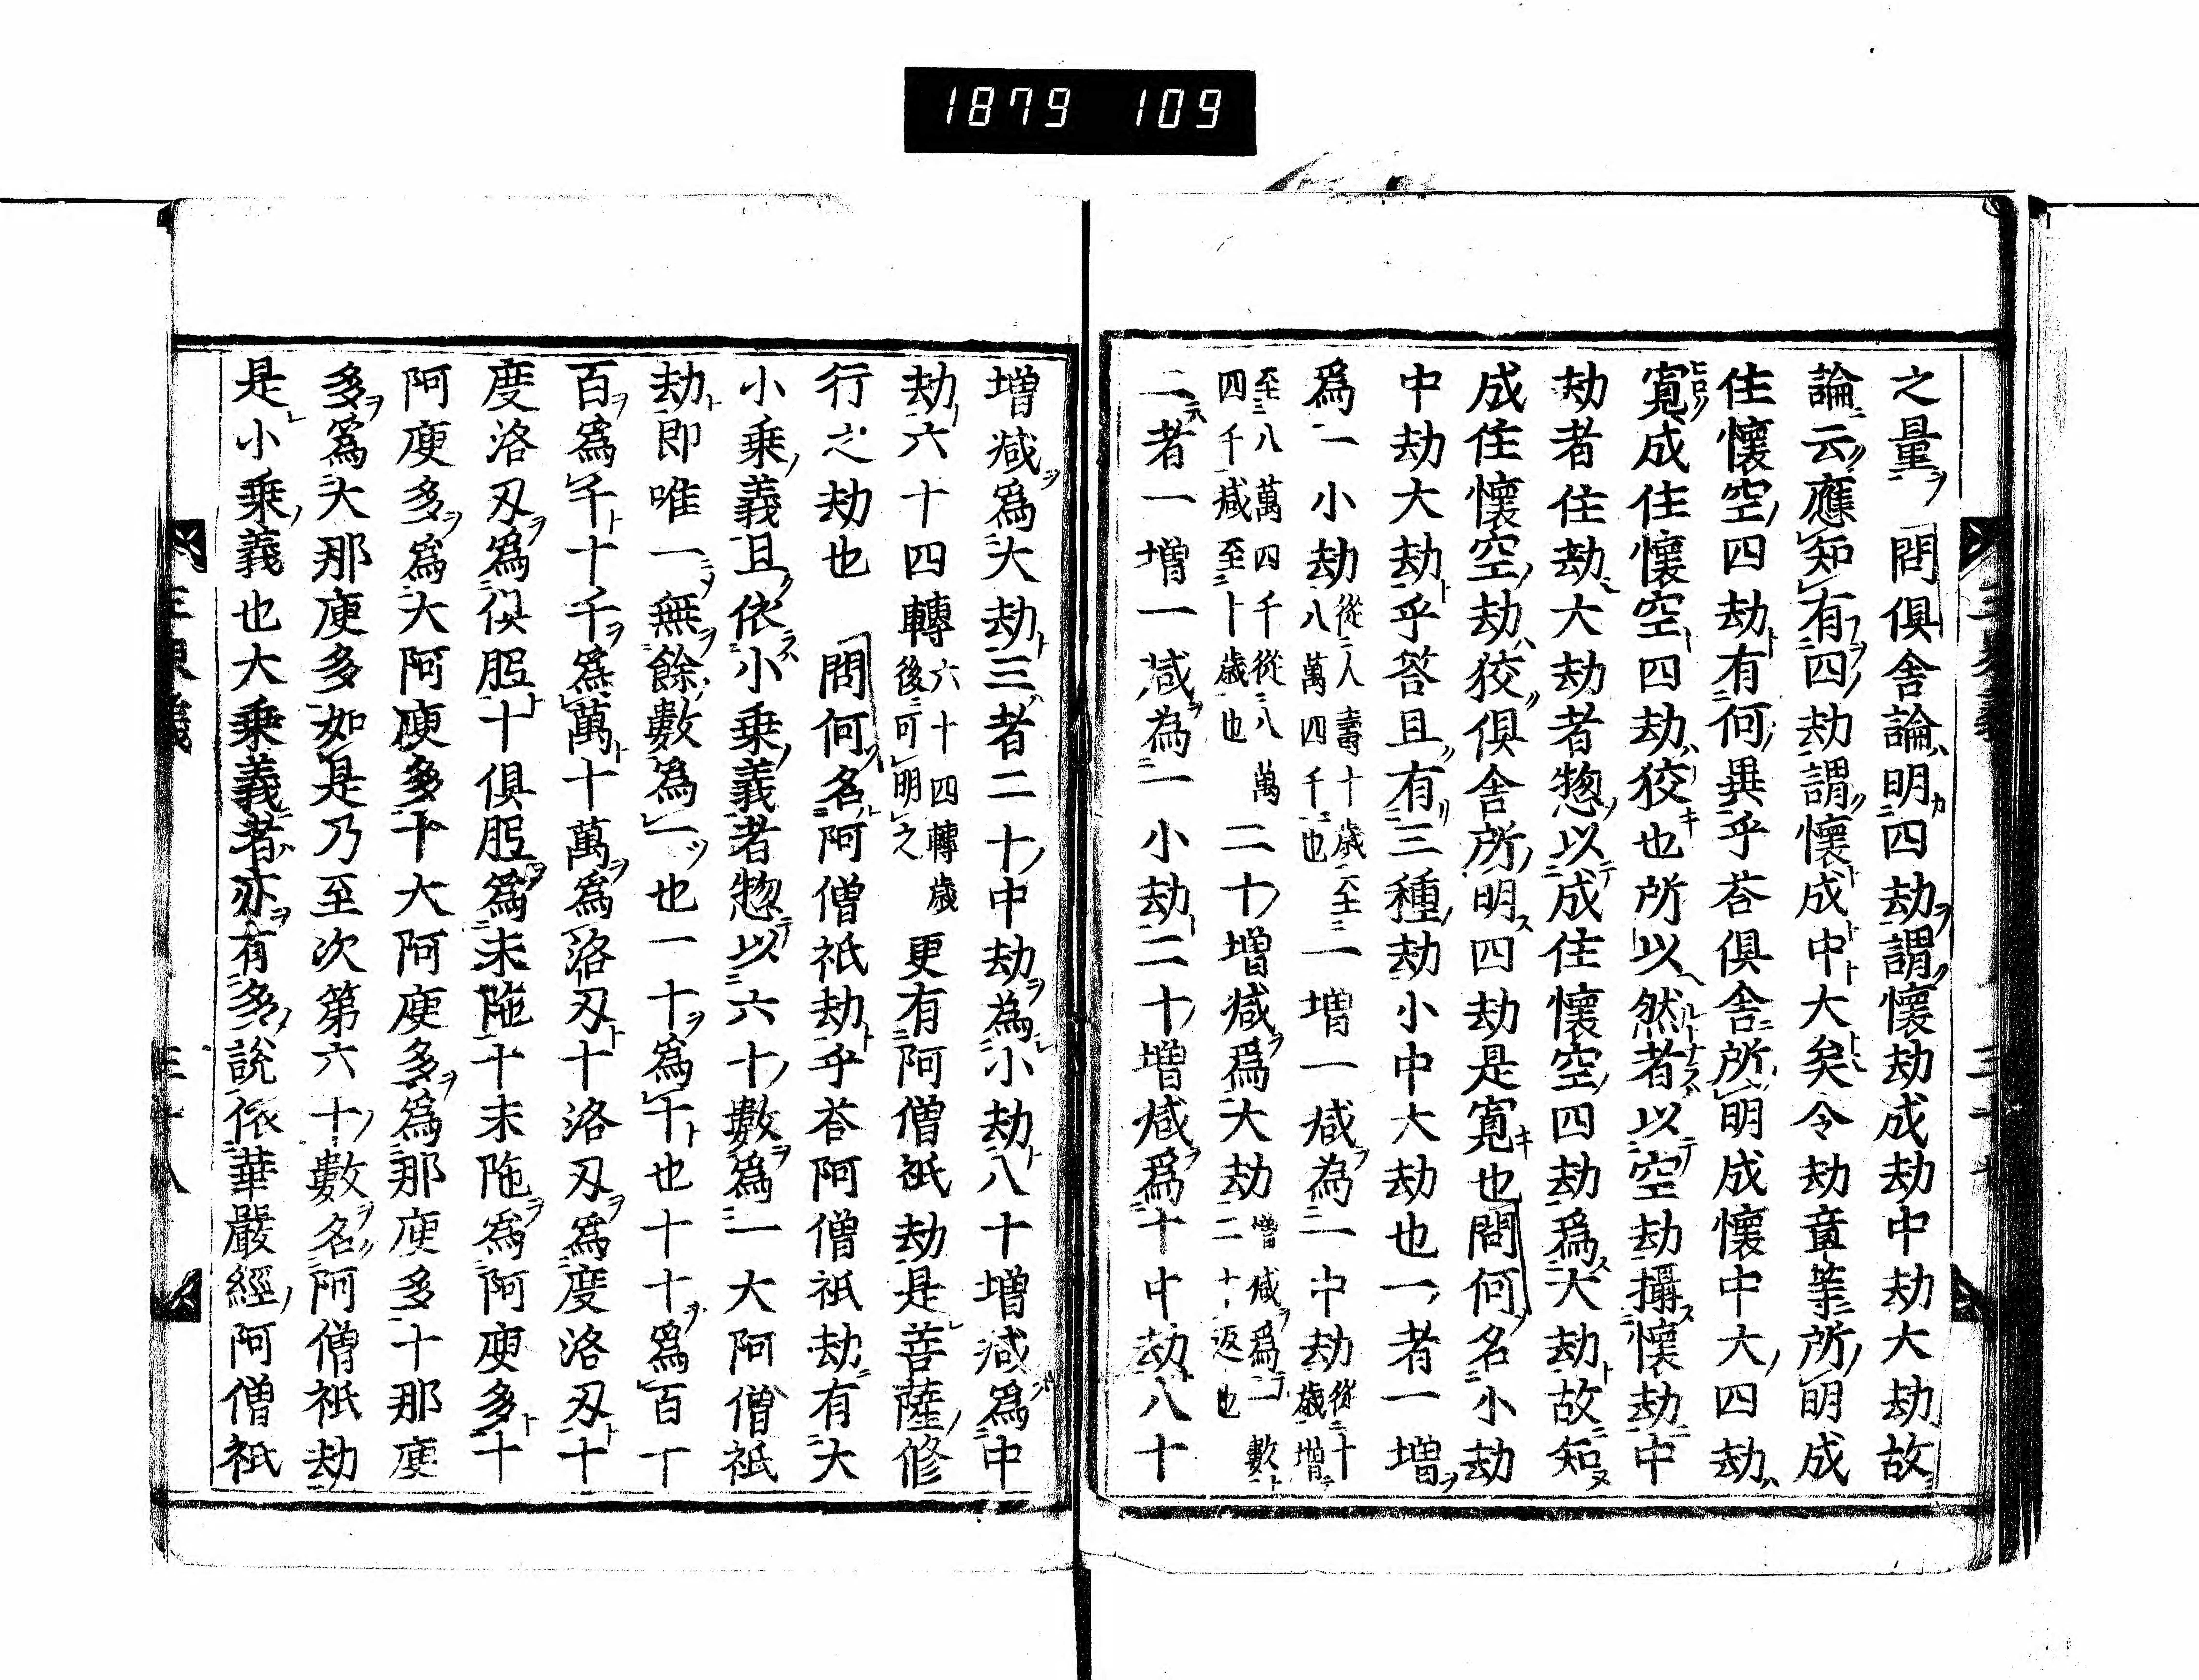 1879 109
之量問俱舎論明四劫謂懷劫成劫中劫大劫故
論云應知有四劫謂懷成中大矣今劫章等所明成
住懷空四劫有何異乎荅俱舎所明成懷中大四劫
寛成住懷空四劫狡也所以然者以空劫攝懷劫中
劫者住劫大劫者惣以成住懷空四劫爲大劫故知
成住懷空劫狡俱舎所明四劫是寛也問何名小劫
中劫大劫乎荅且有三種劫小中大劫也一者一増
爲一小劫從人壽十歳至八萬四千也一増一減為一中劫從十歳増
至八萬四千從八萬四千減至十歳也二十増減爲大劫増減爲一數二十返也
二者一増一減為一小劫二十増減爲十中劫八十
増減爲大劫三者二十中劫為小劫八十増減爲中
劫六十四轉六十四轉歳後可明之更有阿僧祇劫是菩薩修
行之劫也問何名阿僧祇劫乎荅阿僧祇劫有大
小乗義且依小乗義者惣以六十數爲一大阿僧祇
劫即唯一無餘數爲一也一十爲十也十十爲百十
百爲千十千爲萬十萬爲洛刄十洛刄爲度洛刄十
度洛刄爲俱胝十俱胝爲末陁十末陁爲阿庾多十
阿庾多爲大阿庾多十大阿庾多爲那庾多十那庾
多爲大那庾多如是乃至次第六十數名阿僧祇劫
是小乗義也大乗義者亦有多說依華嚴經阿僧祇